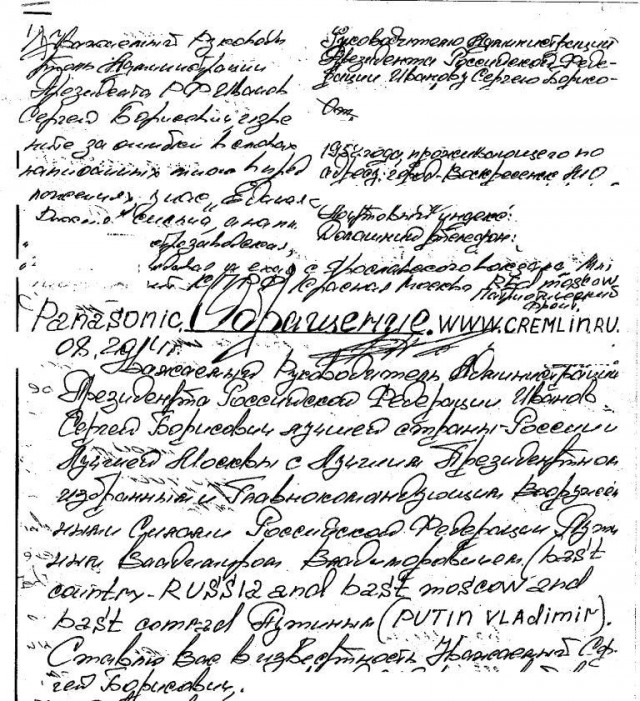 Уважаемый Руководи
тель Администрации
Президента РФ Иванов
Сергей Борисович изве
ните за ошибки в словах
написанных мною и пред
ложениях
Руководителю Администрации
Президента Российской Феде-
рации Иванову Сергею Борисо-
От
1954 года, проживающего по
адресу: город-Воскресенск М.О
Почтовый индекс:
Домашний телефон:
с Ярославского вокзала
Красная Москва RED moscow
Panasonic. Обращение. WWW.CREMLIN.RU.
08.2014г
Уважаемый Руководитель Администрации
Президента Российской Федерации Иванов
Сергей Борисович лучшей страны-России
Лучшей Москвы с Лучшим Президентом
избранным и Главнокомандующим Вооружён
ными Силами Российской Федерации Пути
ным Владимиром Владимировичем (bast
country-RUSSIA and bast moscow and
bast comrad Путиным (PUTIN VLadimir).
Ставлю Вас в известность Уважаемый Сер-
гей Борисович,